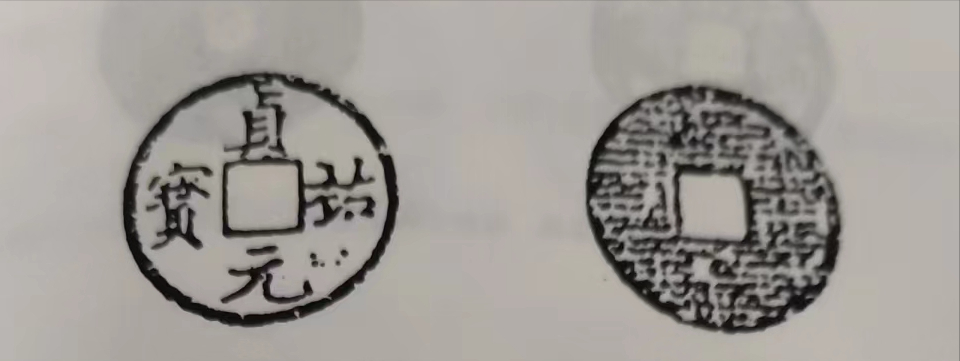 貞祐元寶